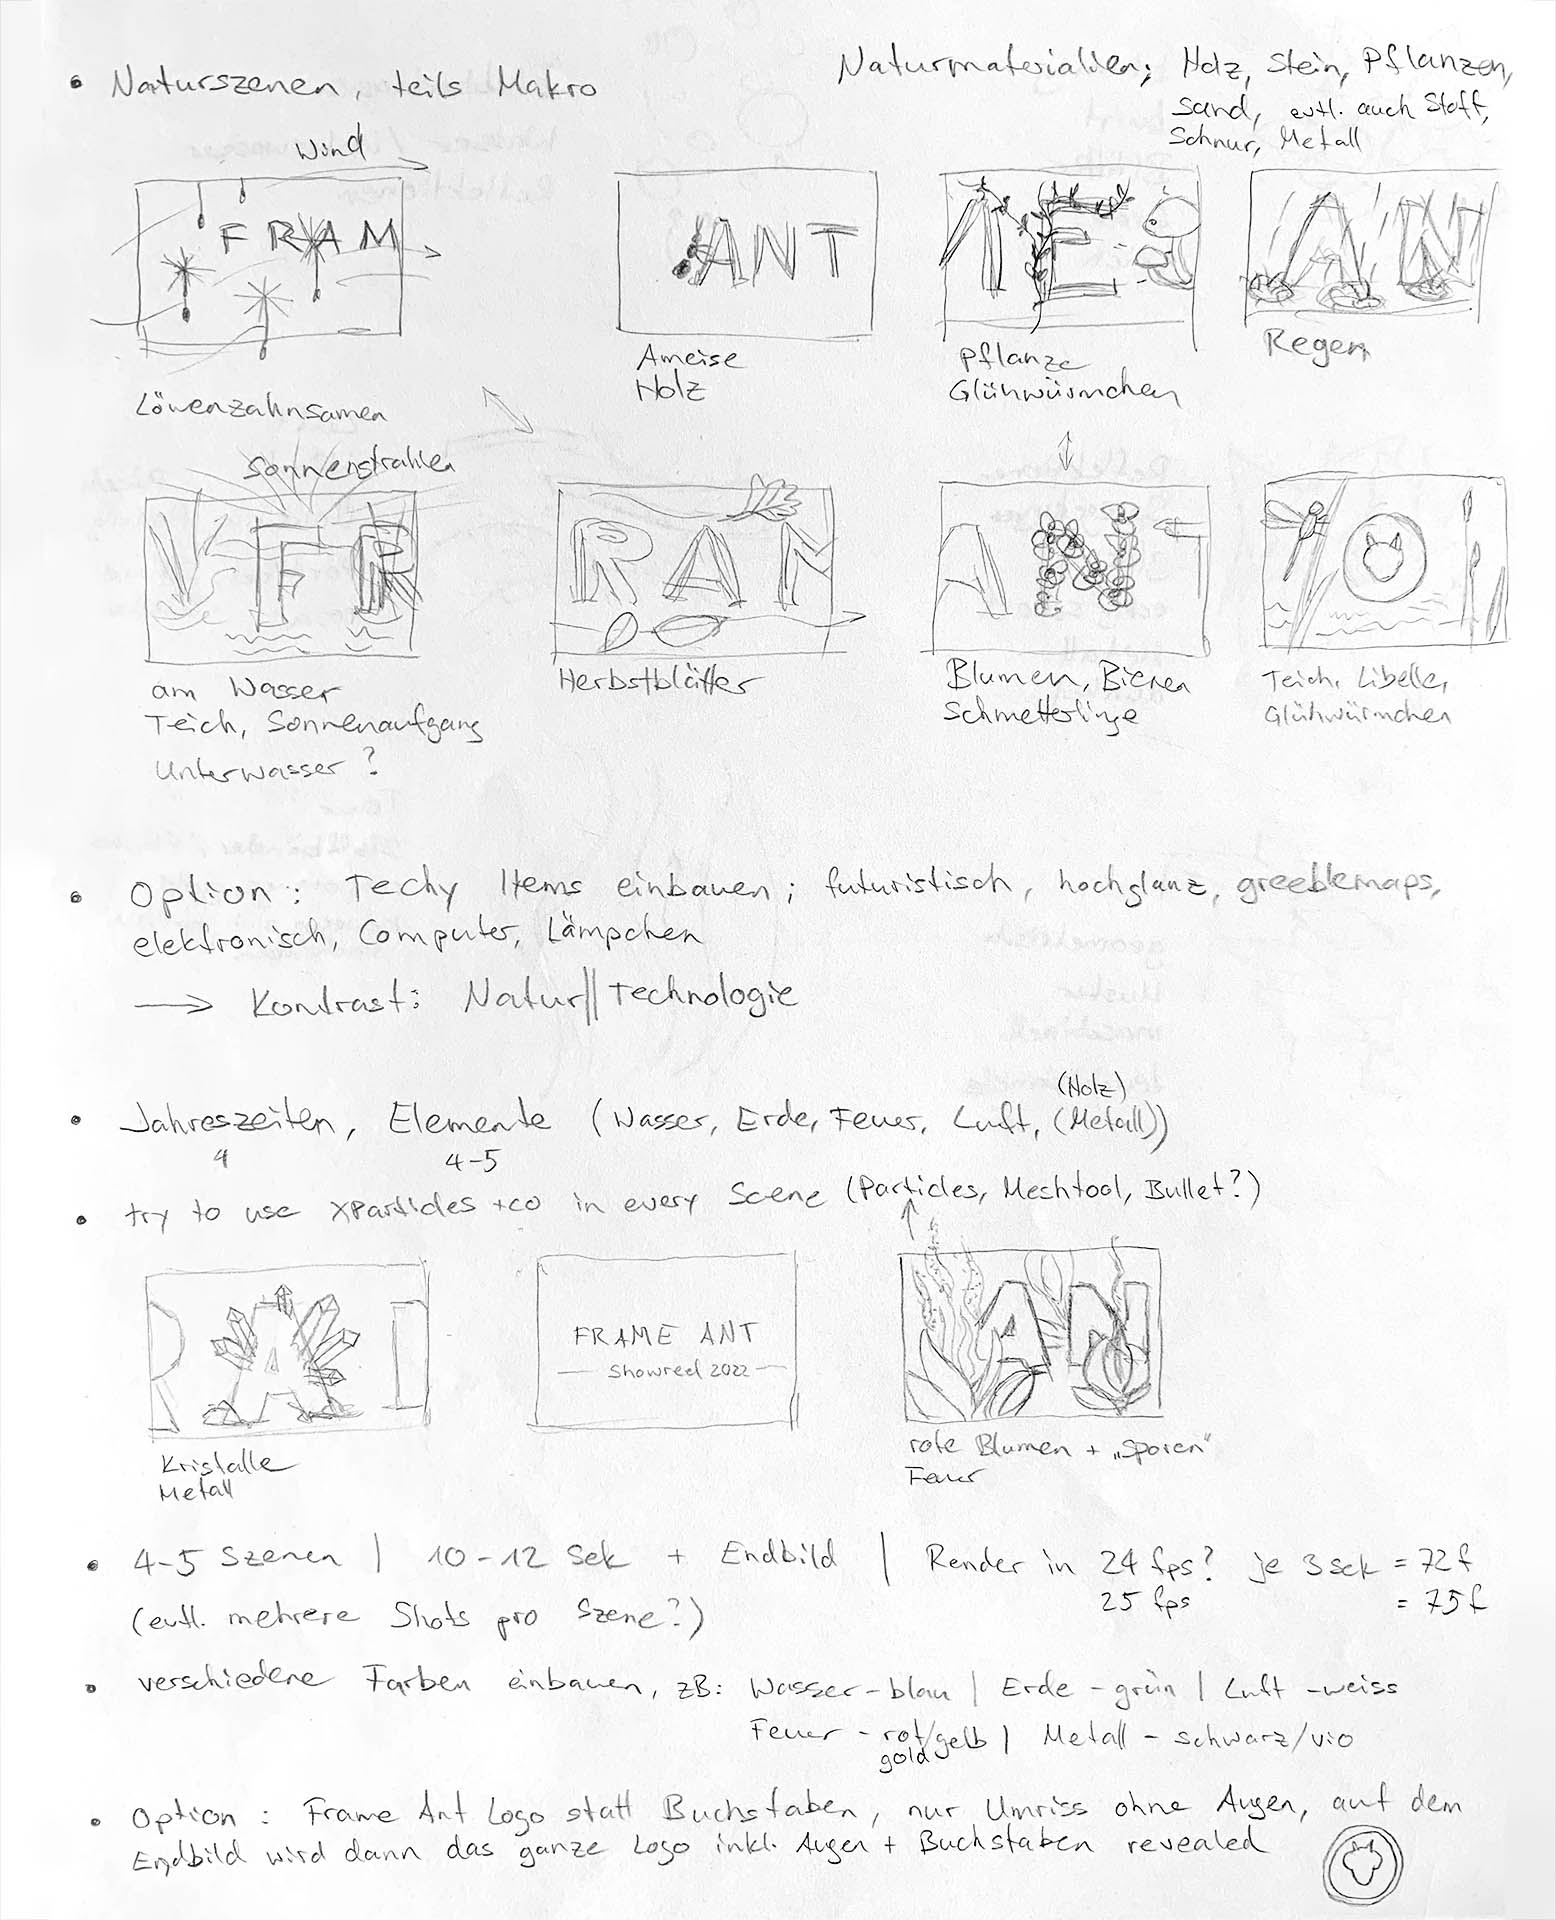 • Naturszenen, teils Makro
Naturmaterialien; Holz, Stein, Pflanzen,
Sand, evtl. auch Stoff,
Schnur, Metall
Wind
FRAM
Löwenzahnsamen
ANT
Ameise
Holz
ME
Pflanze
Glühwürmchen
AN
Regen
Sonnenstrahlen
FR
am Wasser
Teich, Sonnenaufgang
Unterwasser?
RAM
Herbstblätter
ANT
Blumen, Bienen
Schmetterlinge
Teich, Libelle,
Glühwürmchen
• Option: Techy Items einbauen; futuristisch, hochglanz, greeblemaps,
elektronisch, Computer, Lämpchen
→ Kontrast: Natur || Technologie
(Holz)
• Jahreszeiten, Elemente (Wasser, Erde, Feuer, Luft, (Metall))
4 4-5
• try to use XParticles + co in every Scene (Particles, Meshtool, Bullet?)
A
Kristalle
Metall
FRAME ANT
— Showreel 2022 —
AN
rote Blumen + „Sporen"
Feuer
• 4-5 Szenen | 10-12 Sek + Endbild | Render in 24 fps? je 3 sek = 72 f
25 fps = 75 f
(evtl. mehrere Shots pro Szene?)
• verschiedene Farben einbauen, zB: Wasser - blau | Erde - grün | Luft - weiss
Feuer - rot/gelb | Metall - schwarz/vio
gold
• Option: Frame Ant Logo statt Buchstaben, nur Umriss ohne Augen, auf dem
Endbild wird dann das ganze Logo inkl. Augen + Buchstaben revealed